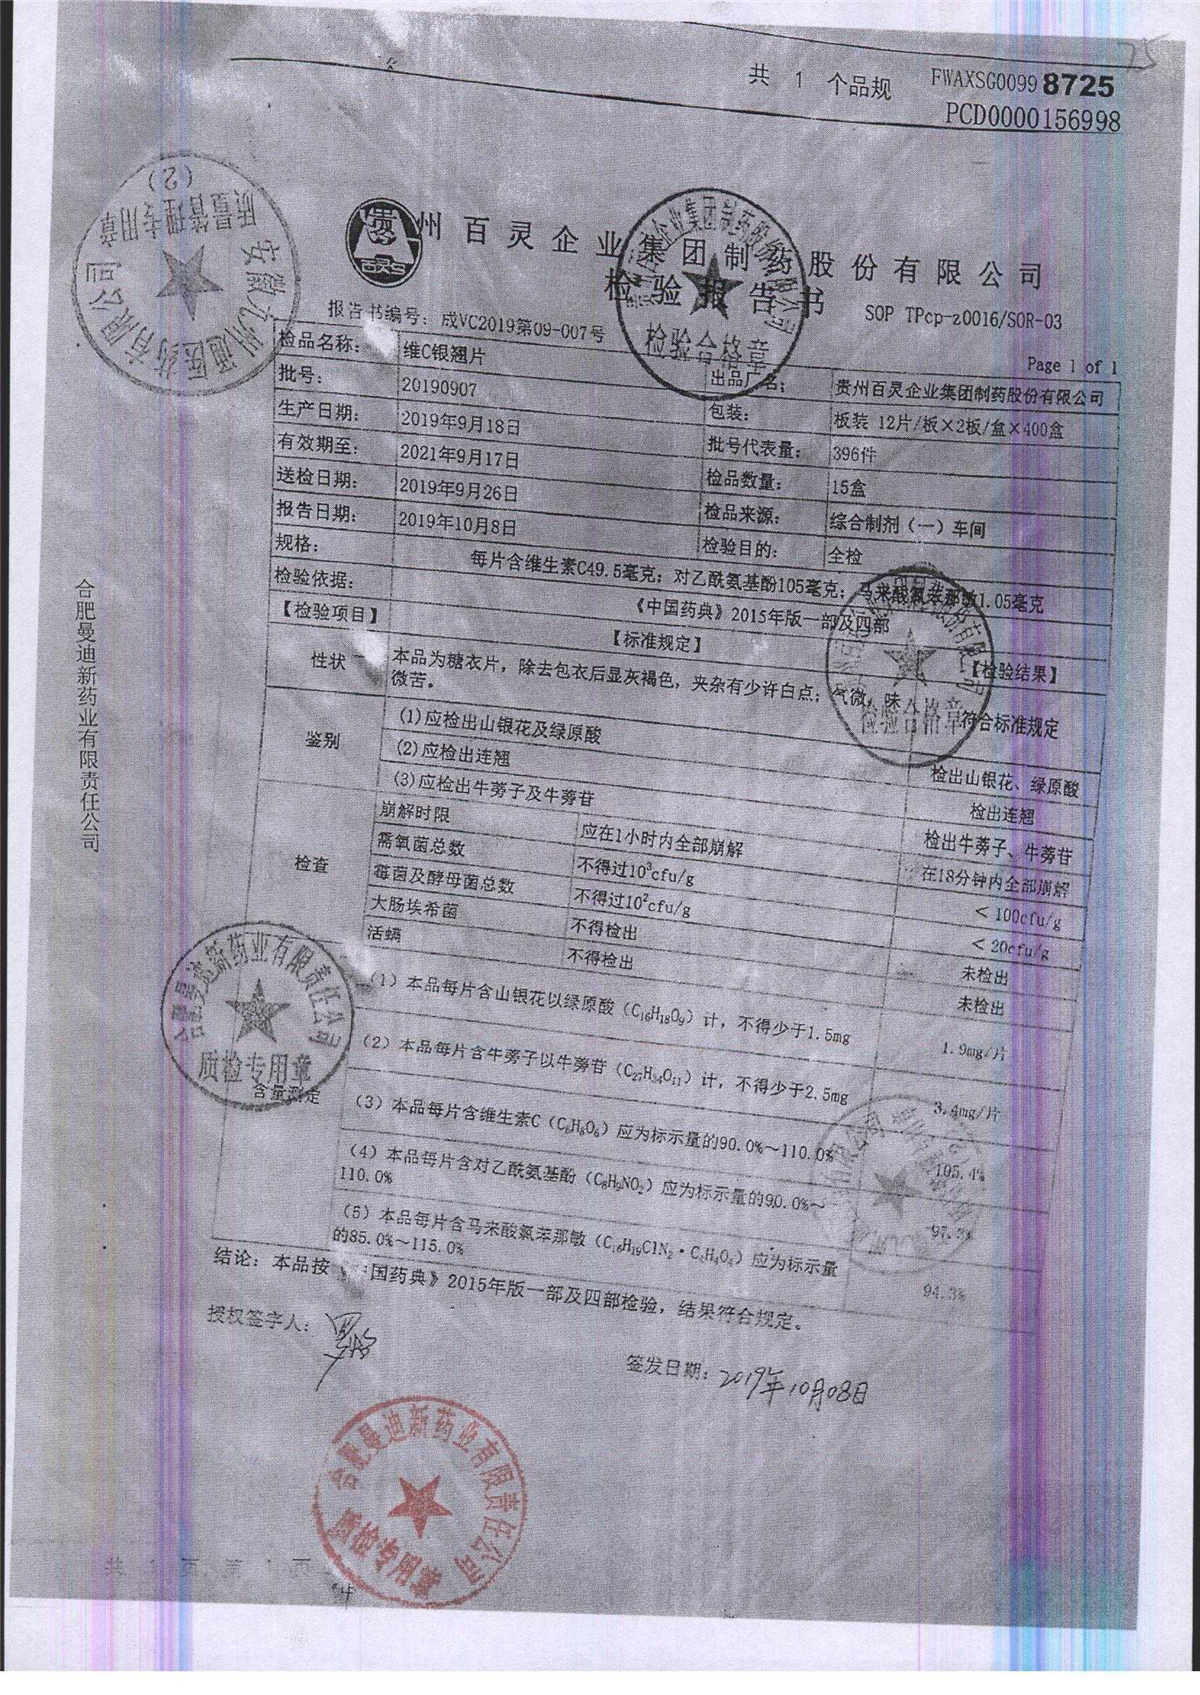 75
共 1 个品规 FWAXSG0099 8725
PCD0000156998
贵州百灵企业集团制药股份有限公司
检验报告书
报告书编号：成VC2019第09-007号 SOP TPcp-z0016/SOR-03
Page 1 of 1
检品名称： 维C银翘片 出品厂名： 贵州百灵企业集团制药股份有限公司
批号： 20190907 包装： 板装 12片/板×2板/盒×400盒
生产日期： 2019年9月18日 批号代表量： 396件
有效期至： 2021年9月17日 检品数量： 15盒
送检日期： 2019年9月26日 检品来源： 综合制剂（一）车间
报告日期： 2019年10月8日 检验目的： 全检
规格： 每片含维生素C49.5毫克；对乙酰氨基酚105毫克；马来酸氯苯那敏1.05毫克
检验依据： 《中国药典》2015年版一部及四部
【检验项目】 【标准规定】 【检验结果】
性状 本品为糖衣片，除去包衣后显灰褐色，夹杂有少许白点；气微，味
微苦。 符合标准规定
鉴别 (1)应检出山银花及绿原酸 检出山银花、绿原酸
(2)应检出连翘 检出连翘
(3)应检出牛蒡子及牛蒡苷 检出牛蒡子、牛蒡苷
检查 崩解时限 应在1小时内全部崩解 在18分钟内全部崩解
需氧菌总数 不得过10³cfu/g ＜100cfu/g
霉菌及酵母菌总数 不得过10²cfu/g ＜20cfu/g
大肠埃希菌 不得检出 未检出
活螨 不得检出 未检出
含量测定 (1) 本品每片含山银花以绿原酸（C₁₆H₁₈O₉）计，不得少于1.5mg 1.9mg/片
(2) 本品每片含牛蒡子以牛蒡苷（C₂₇H₃₄O₁₁）计，不得少于2.5mg 3.4mg/片
(3) 本品每片含维生素C（C₆H₈O₆）应为标示量的90.0%～110.0% 105.4%
(4) 本品每片含对乙酰氨基酚（C₈H₉NO₂）应为标示量的90.0%～
110.0%
(5) 本品每片含马来酸氯苯那敏（C₁₆H₁₉ClN₂·C₄H₄O₄）应为标示量
的85.0%～115.0% 94.3%
结论：本品按《中国药典》2015年版一部及四部检验，结果符合规定。
授权签字人：
签发日期：2019年10月08日
合肥曼迪新药业有限责任公司
安徽九州通医药有限公司
质量管理专用章
(2)
检验合格章
检验合格章
合肥曼迪新药业有限责任公司
质检专用章
合肥曼迪新药业有限责任公司
质检专用章